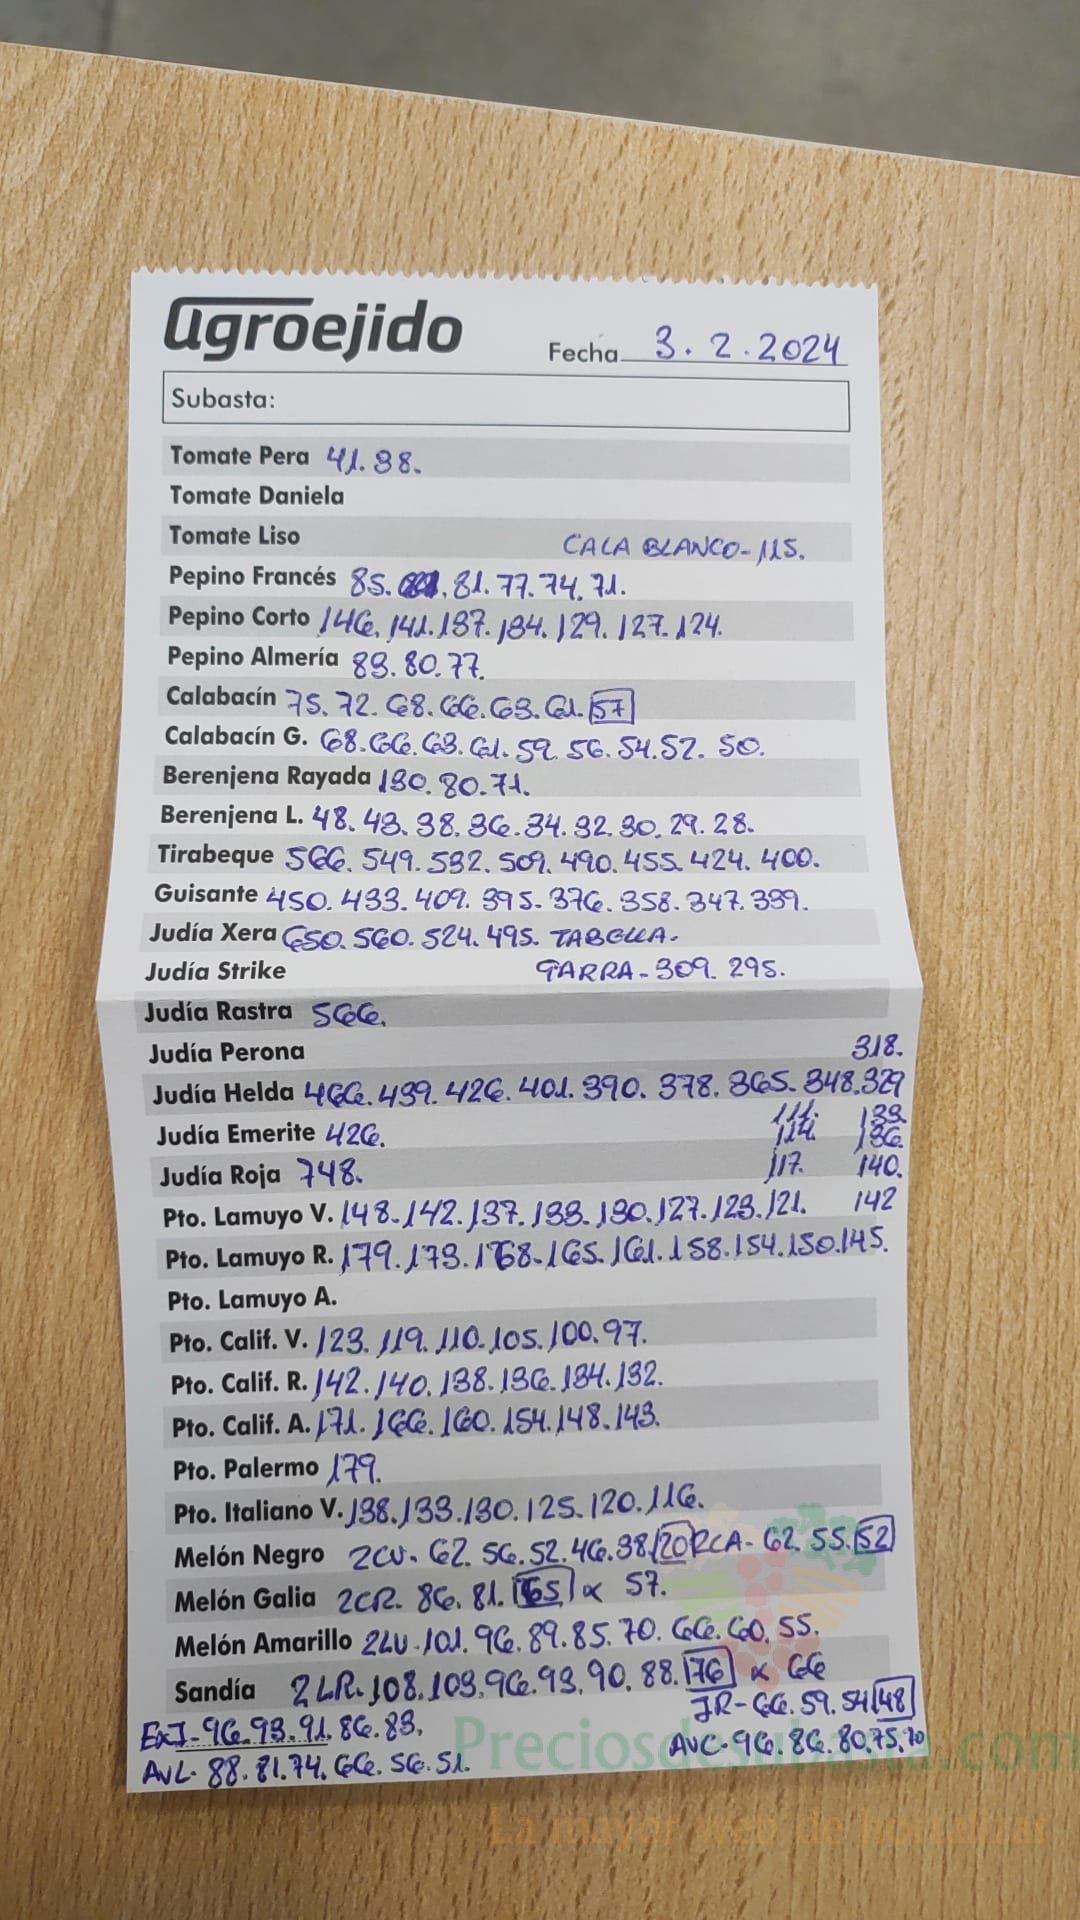 agroejido
Fecha 3.2.2024
Subasta:
Tomate Pera 41.38.
Tomate Daniela
Tomate Liso CALA BLANCO-115.
Pepino Francés 85. 81. 77. 74. 71.
Pepino Corto 146. 141. 137. 134. 129. 127. 124.
Pepino Almería 83. 80. 77.
Calabacín 75. 72. 68. 66. 63. 61. 57
Calabacín G. 68. 66. 63. 61. 59. 56. 54. 52. 50.
Berenjena Rayada 130. 80. 71.
Berenjena L. 48. 43. 38. 36. 34. 32. 30. 29. 28.
Tirabeque 566. 549. 532. 509. 490. 455. 424. 400.
Guisante 450. 433. 409. 395. 376. 358. 347. 339.
Judía Xera 650. 560. 524. 495. TABELLA.
Judía Strike GARRA-309. 295.
Judía Rastra 566.
Judía Perona 318.
Judía Helda 466. 439. 426. 401. 390. 378. 365. 348. 329
Judía Emerite 426. 111. 133.
114. 136.
Judía Roja 748. 117. 140.
Pto. Lamuyo V. 148. 142. 137. 133. 130. 127. 123. 121. 142
Pto. Lamuyo R. 179. 173. 168. 165. 161. 158. 154. 150. 145.
Pto. Lamuyo A.
Pto. Calif. V. 123. 119. 110. 105. 100. 97.
Pto. Calif. R. 142. 140. 138. 136. 134. 132.
Pto. Calif. A. 171. 166. 160. 154. 148. 143.
Pto. Palermo 179.
Pto. Italiano V. 138. 133. 130. 125. 120. 116.
Melón Negro 2CV- 62. 56. 52. 46. 38. 20 RCA- 62. 55. 52
Melón Galia 2CR. 86. 81. 65 α 57.
Melón Amarillo 2LV- 101. 96. 89. 85. 70. 66. 60. 55.
Sandía 2LR. 108. 103. 96. 93. 90. 88. 76 α 66
JR- 66. 59. 54 48
ExJ- 96. 93. 91. 86. 83.
AVC- 96. 86. 80. 75. 70
AVL- 88. 81. 74. 66. 56. 51.
Preciosdesubasta.com
La mayor web de hortalizar